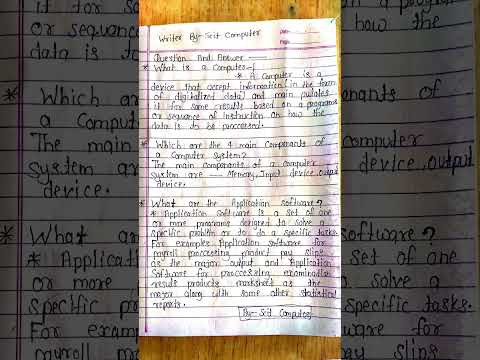 Writer By- Scit Computer
Question And Answer
* What is a Computer-?
* A Computer is a
device that accept information (in the form
of digitalized data) and main pulates
it for some results based on a programs
or sequence of instruction on how the
data is to be processed.
* Which are the 4 main Componants of
a Computer system?
The main componants of a computer
system are — Memory, Input device, output
device.
* What are the Application software?
* Application Software is a set of one
or more programs designed to solve a
specific problem or do to a specific tasks.
For examples Application software for
payroll proccessing product pay slips
as the major output and Application
Software for proccessing examination
results products marksheet as the
major along with some other statistical
reports.
By- Scit Computer